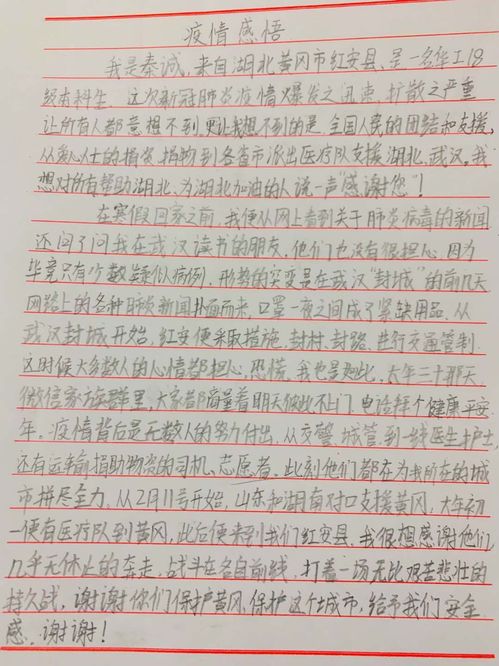 疫情感悟
我是秦诚,来自湖北黄冈市红安县,是一名华工18
级本科生。这次新冠肺炎疫情爆发之迅速,扩散之严重
让所有人都意想不到,更让我想不到的是,全国人民的团结和支援,
从爱心人士的捐资、捐物到各省市派出医疗队支援湖北、武汉。我
想对所有帮助湖北、为湖北加油的人说一声“感谢您”!
在寒假回家之前,我便从网上看到关于肺炎病毒的新闻
还问了问我在武汉读书的朋友,他们也没有很担心,因为
毕竟只有少数疑似病例,形势的突变是在武汉“封城”的前几天
网路上的各种新闻扑面而来,口罩一夜之间成了紧缺用品。从
武汉封城开始,红安便采取措施,封村、封路、进行交通管制
这时候大多数人的心情都担心、恐慌。我也是如此,大年三十那天
微信家族群里,大家都商量着明天彼此不上门,电话拜个健康平安
年。疫情背后是无数人的努力付出,从交警、城管到一线医生护士,
还有运输捐助物资的司机、志愿者。此刻他们都在为我所在的城
市拼尽全力,从2月11号开始,山东和湖南对口支援黄冈,大年初
一便有医疗队到黄冈,此后便来到我们红安县。我很想感谢他们,
几乎无休止的奔走,战斗在各自前线,打着一场无比艰苦悲壮的
持久战,谢谢你们保护黄冈,保护这个城市,给予我们安全
感,谢谢!